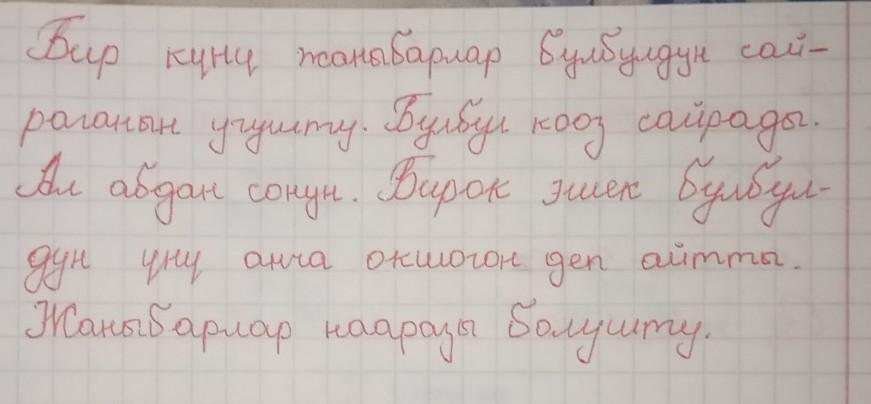 Бир күнү жаныбарлар булбулдун сай-
раганын угушту. Булбул кооз сайрады.
Ал абдан сонун. Бирок эшек булбул-
дун үнү анча окшогон деп айтты.
Жаныбарлар нааразы болушту.